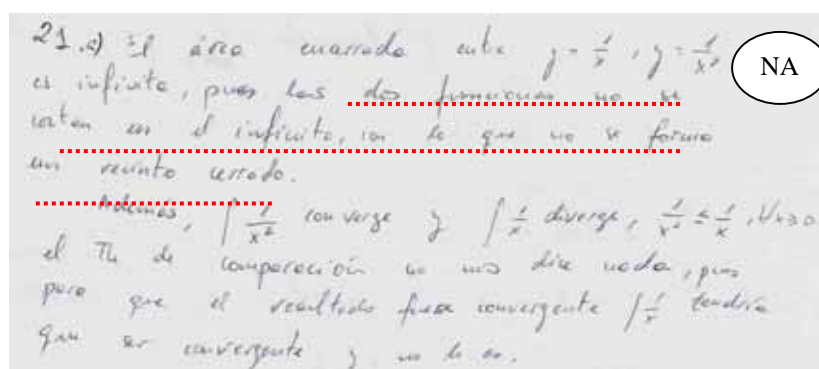 21.c) El área encerrada entre y = 1/x, y = 1/x²
NA
es infinita, pues las dos funciones no se
cortan en el infinito, con lo que no se forma
un recinto cerrado.
Además, ∫ 1/x² converge y ∫ 1/x diverge, 1/x² ≤ 1/x, ∀x≥0
el Th de comparación no nos dice nada, pues
para que el resultado fuese convergente ∫ 1/x tendría
que ser convergente y no lo es.